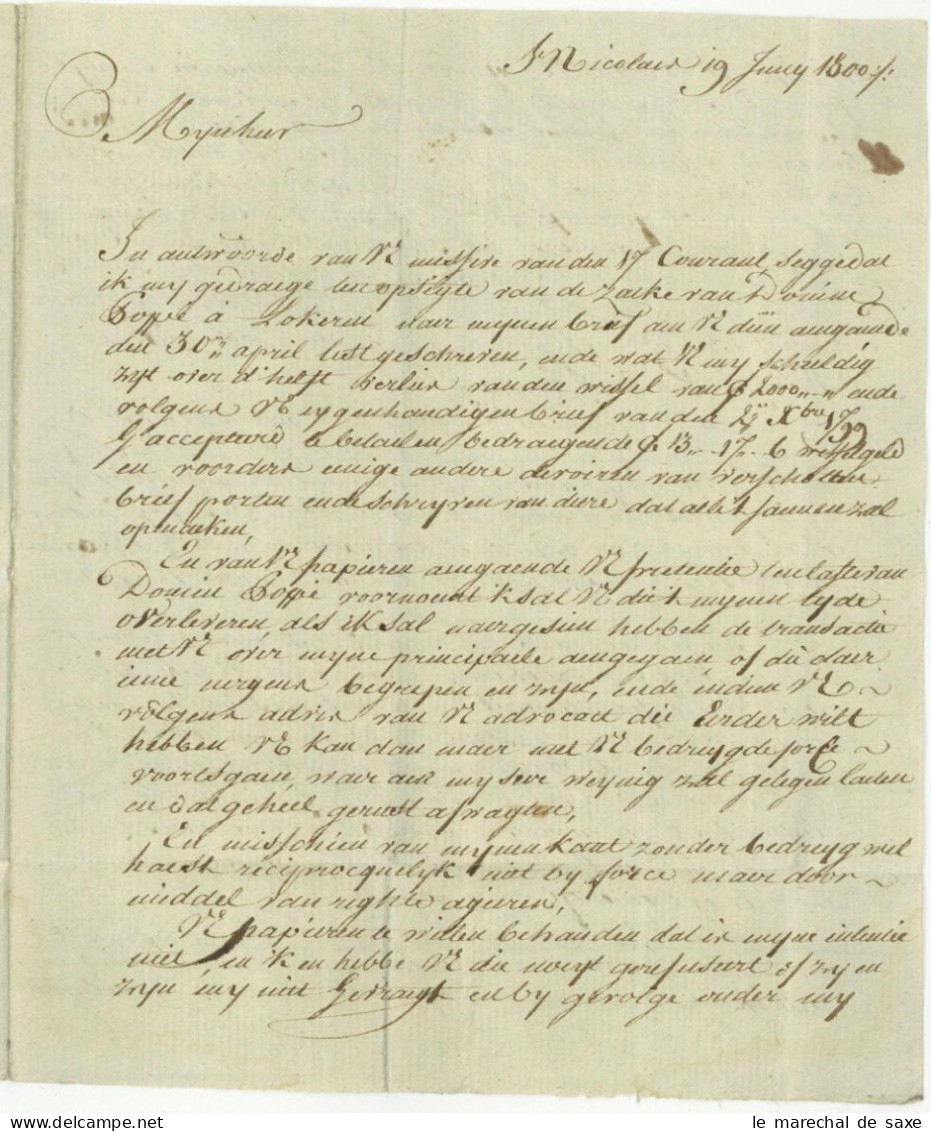 St Nicolaes 19 Juny 1800 ./.
Mynheer
In antwoorde van UE missive van den 17 Courant, segge dat
ik my gedraege ten opsigte van de zaeke van Domine
Poppe à Lokeren naer mynen brief aen UE dien aengaende
den 30en april lest geschreven, ende wat UE my schuldig
zyt over d'helft verlies van den wissel van £ 2000 ,, ,, ende
volgens UE eygenhandigen brief van den Xbre 1799
G'accepteerd te betaelen bedraegende £ 13 ,, 17 ,, 6 wisselgeld
en voorders eenige andere devoiren van verschotten
brief porten ende schryven van diere dat al t'samen zal
opmaeken,
En van UE papieren aengaende UE pretentie ten laste van
Domin Poppe voornoemt ik sal UE die t mynen tyde
overleveren, als ik sal naergesien hebben de transactie
met UE over myne principaele aengegaen of die daer
inne nergens begrepen en zyn, ende indien UE
volgens advis van UE advocaet die eerder wilt
hebben UE kan dan maer met UE bedreygde force
voortsgaen, waer aen my seer weynig zal gelegen laeten
en dat geheel gerust afwagten,
En misschien van mynen kant zonder bedreyg wel
haest reciprocquelyk niet by force maer door
middel van rigte ageren,
UE papieren te willen behouden dat is myne intentie
niet, en ik en hebbe UE die noeyt gerefuseert of zy en
zyn my niet Gevraegt en by gevolge onder my
le marechal de saxe